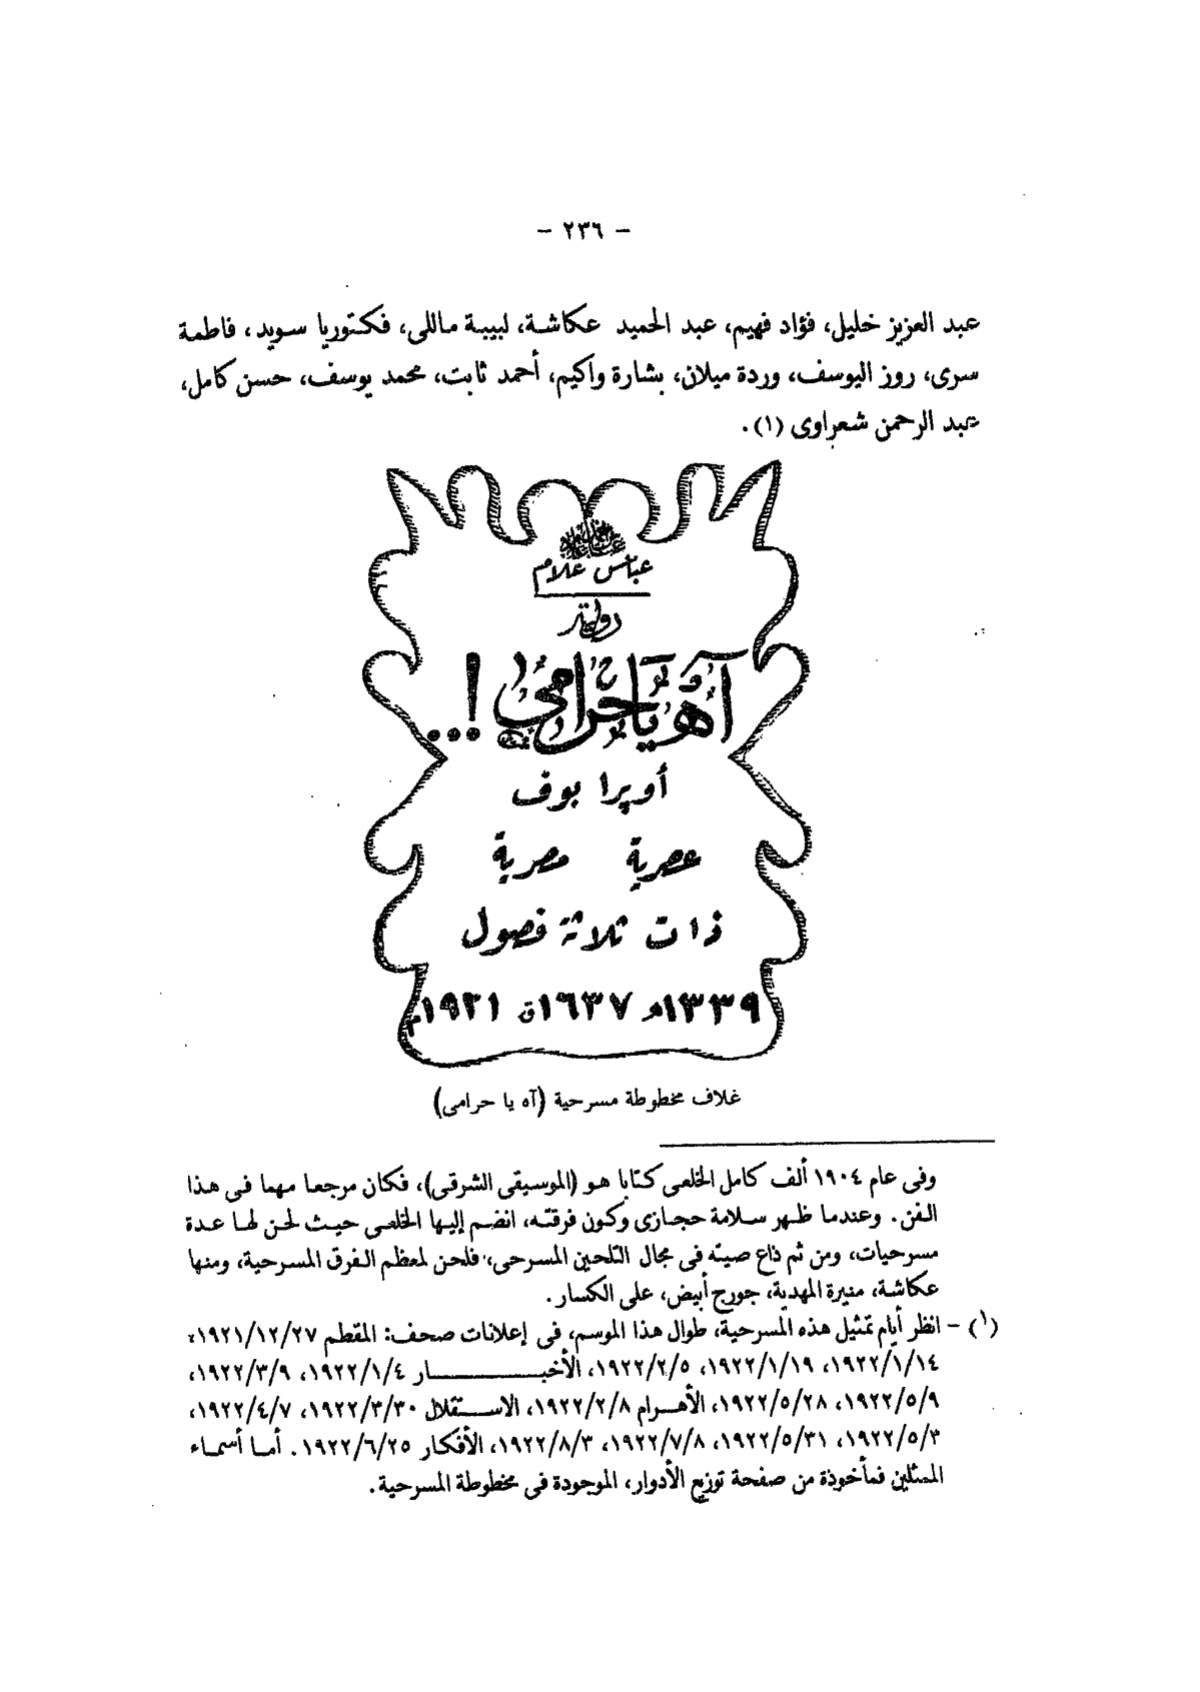 - ٢٣٦ -
عبد العزيز خليل، فؤاد فهيم، عبد الحميد عكاشة، لبيبة ماللى، فكتوريا سويد، فاطمة
سرى، روز اليوسف، وردة ميلان، بشارة واكيم، أحمد ثابت، محمد يوسف، حسن كامل،
عبد الرحمن شعراوى (١).
عباس علام
آه يا حرامى !...
أوپرا بوف
عصرية مصرية
ذات ثلاثة فصول
١٣٣٩هـ ١٦٣٧ق ١٩٢١م
غلاف مخطوطة مسرحية (آه يا حرامى)
وفى عام ١٩٠٤ ألف كامل الخلعى كتابا هو (الموسيقى الشرقى)، فكان مرجعا مهما فى هذا
الفن. وعندما ظهر سلامة حجازى وكون فرقته، انضم إليها الخلعى حيث لحن لها عدة
مسرحيات، ومن ثم ذاع صيته فى مجال التلحين المسرحى، فلحن لمعظم الفرق المسرحية، ومنها
عكاشة، منيرة المهدية، جورج أبيض، على الكسار.
(١) - انظر أيام تمثيل هذه المسرحية، طوال هذا الموسم، فى إعلانات صحف: المقطم ١٩٢١/١٢/٢٧،
١٩٢٢/١/١٤، ١٩٢٢/١/١٩، ١٩٢٢/٢/٥، الأخبـــــــار ١٩٢٢/١/٤، ١٩٢٢/٣/٩،
١٩٢٢/٥/٩، ١٩٢٢/٥/٢٨، الأهرام ١٩٢٢/٢/٨، الاستقلال ١٩٢٢/٣/٣٠، ١٩٢٢/٤/٧،
١٩٢٢/٥/٣، ١٩٢٢/٥/٣١، ١٩٢٢/٧/٨، ١٩٢٢/٨/٣، الأفكار ١٩٢٢/٦/٢٥. أما أسماء
الممثلين فمأخوذة من صفحة توزيع الأدوار، الموجودة فى مخطوطة المسرحية.